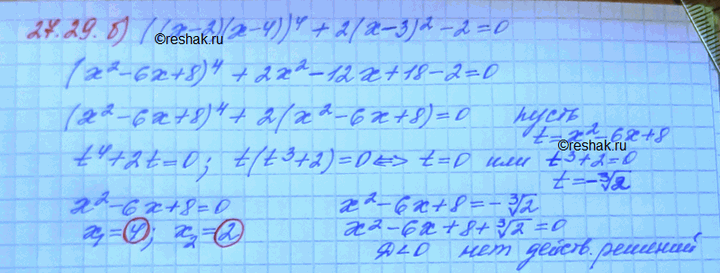 27.29. б) ((x-2)(x-4))⁴ + 2(x-3)² - 2 = 0
©reshak.ru
(x²-6x+8)⁴ + 2x²-12x+18-2=0
(x²-6x+8)⁴ + 2(x²-6x+8)=0 пусть
t=x²-6x+8
©reshak.ru
t⁴+2t=0; t(t³+2)=0 <=> t=0 или t³+2=0
t=-∛2
x²-6x+8=0 x²-6x+8=-∛2
x₁=4; x₂=2 x²-6x+8+∛2=0
D<0 нет действ. решений